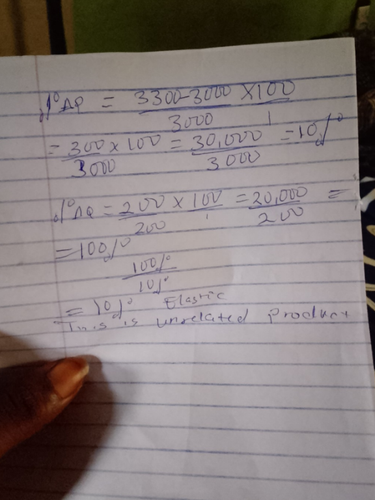 %ΔP = 3300-3000 × 100
3000 1
= 300 × 100 = 30,000 = 10%
3000 3000
%ΔQ = 200 × 100 = 20,000 =
200 1 200
= 100%
100%
10%
= 10% Elastic
This is unrelated product